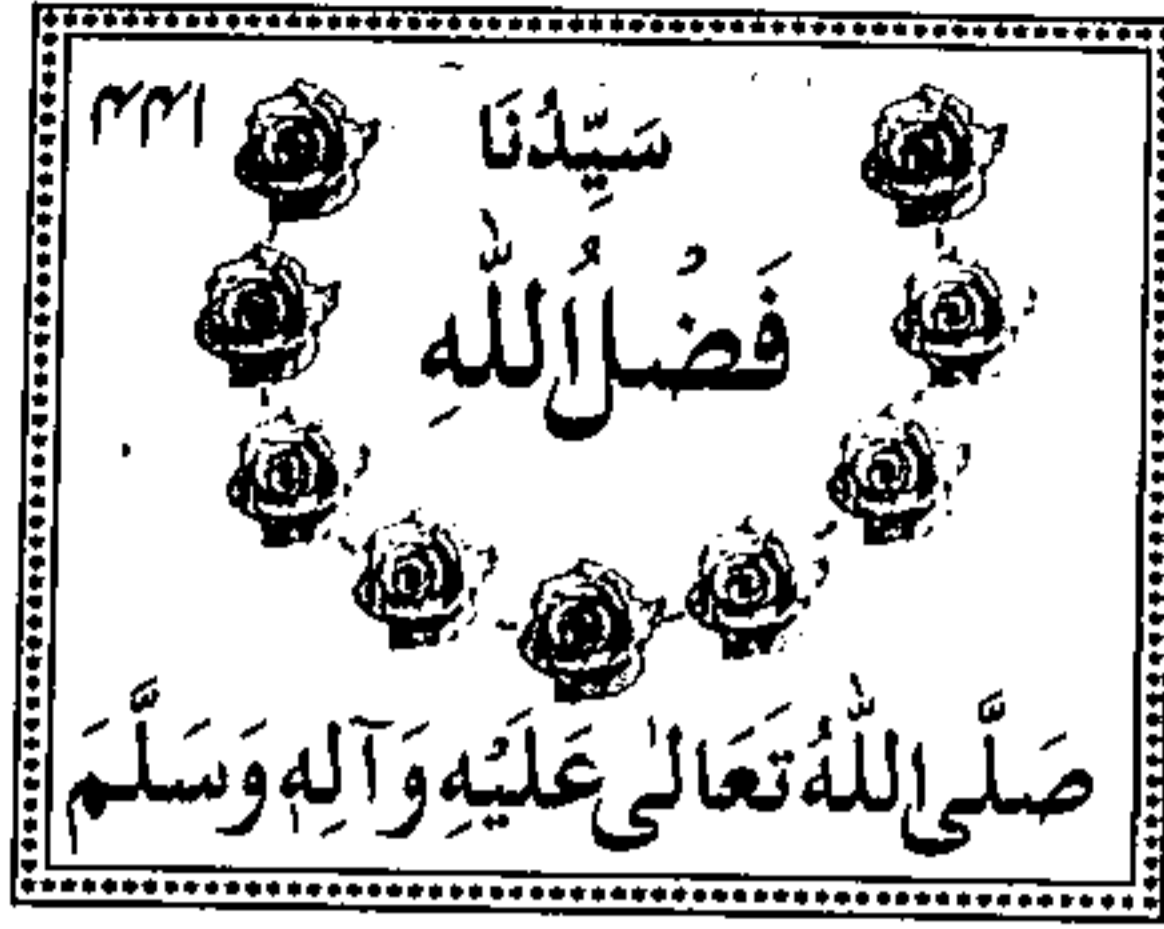 ۴۴۱
سَيِّدُنَا
فَضْلُ اللّٰهِ
صَلَّى اللّٰهُ تَعَالٰى عَلَيْهِ وَآلِهٖ وَسَلَّمَ